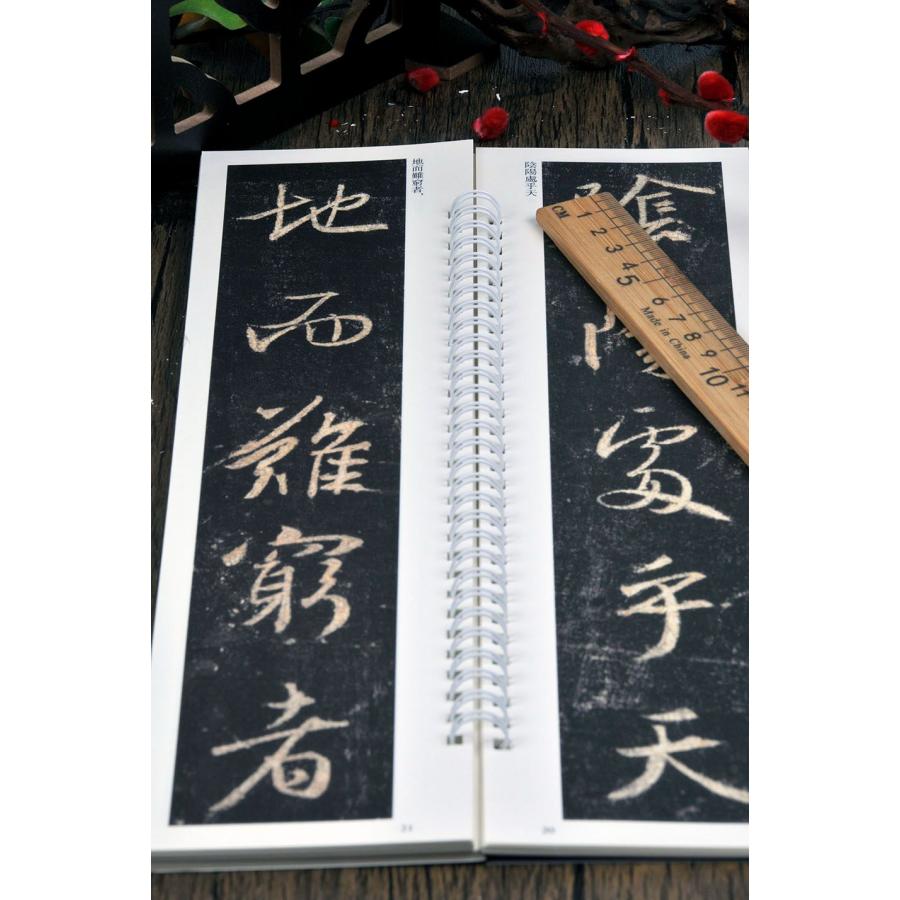 陰陽處乎天
陰陽處乎天
地而難窮者，
地而難窮者
CM 1 2 3 4 5 6 7 8 9 10 11
Made in China
20
21